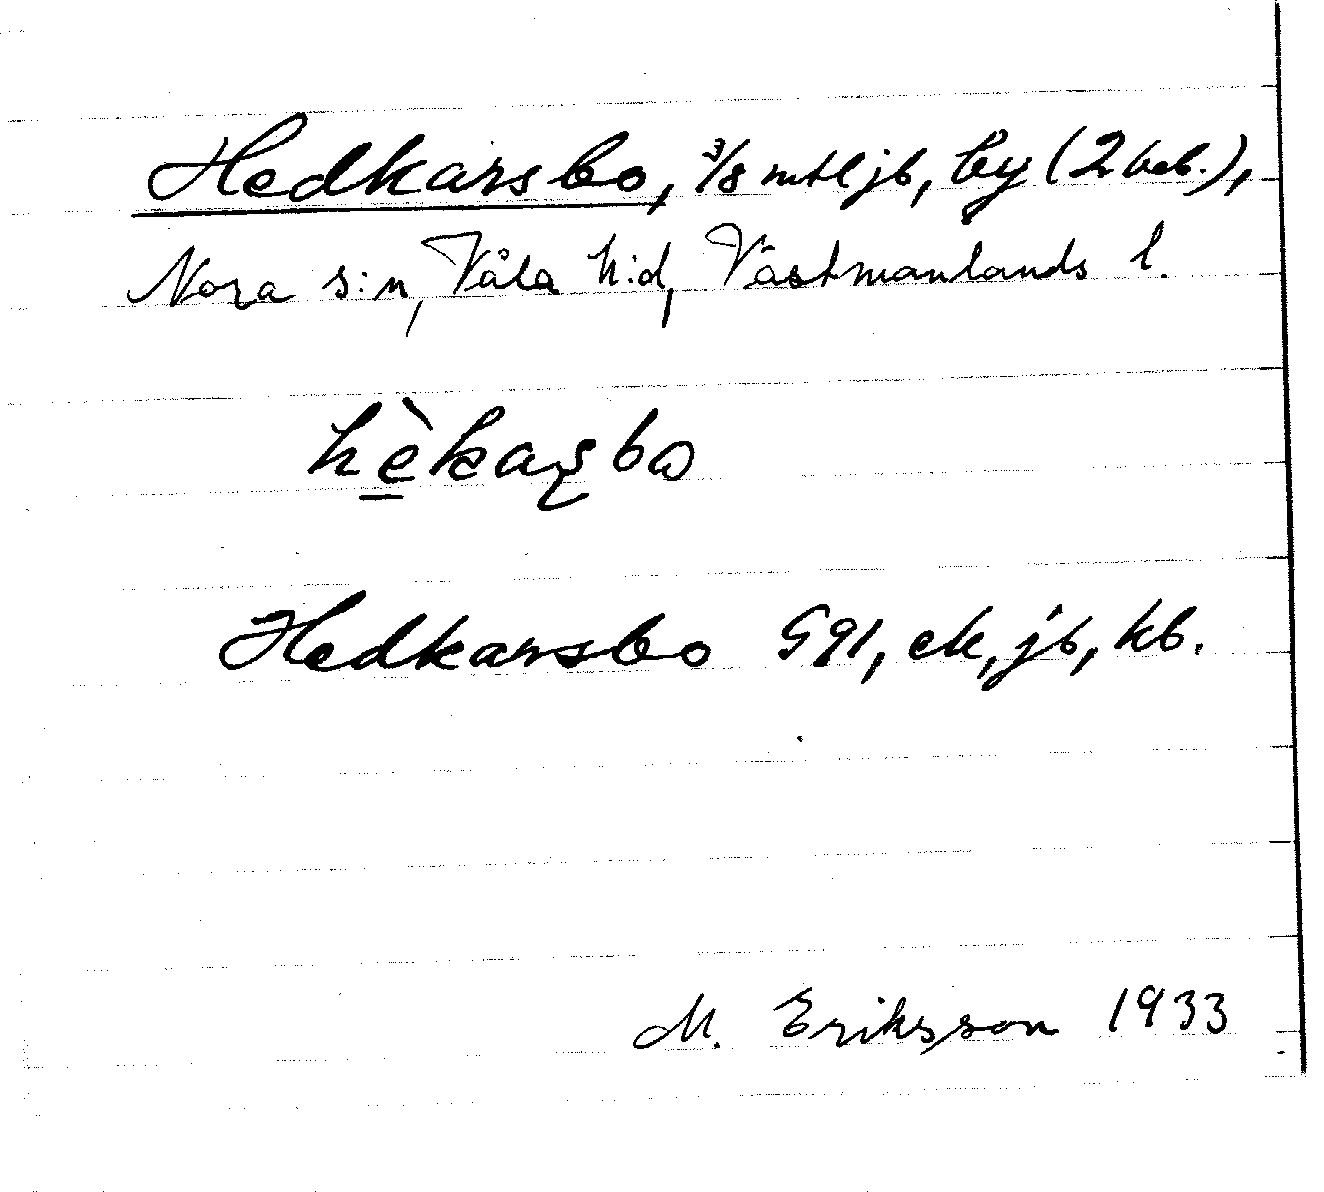 Hedkarsbo, 3/8 mtl jb, by (2 beb.),
Nora s:n, Våla h:d, Västmanlands l.
hèkaʂbo
Hedkarsbo G91, ek, jb, kb.
M. Eriksson 1933